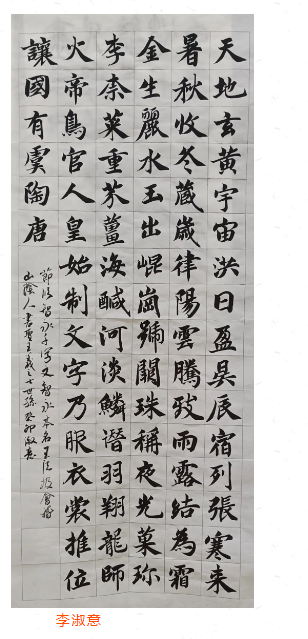 天地玄黃宇宙洪日盈昃辰宿列張寒来
暑秋收冬藏歲律陽雲騰致雨露結為霜
金生麗水玉出崐崗號關珠稱夜光菓珍
李奈菜重芥薑海鹹河淡鱗潛羽翔龍師
火帝鳥官人皇始制文字乃服衣裳推位
讓國有虞陶唐
節臨智永千字文智永本名王法极會稽
山陰人書聖王羲之七世孫癸卯淑意
李淑意